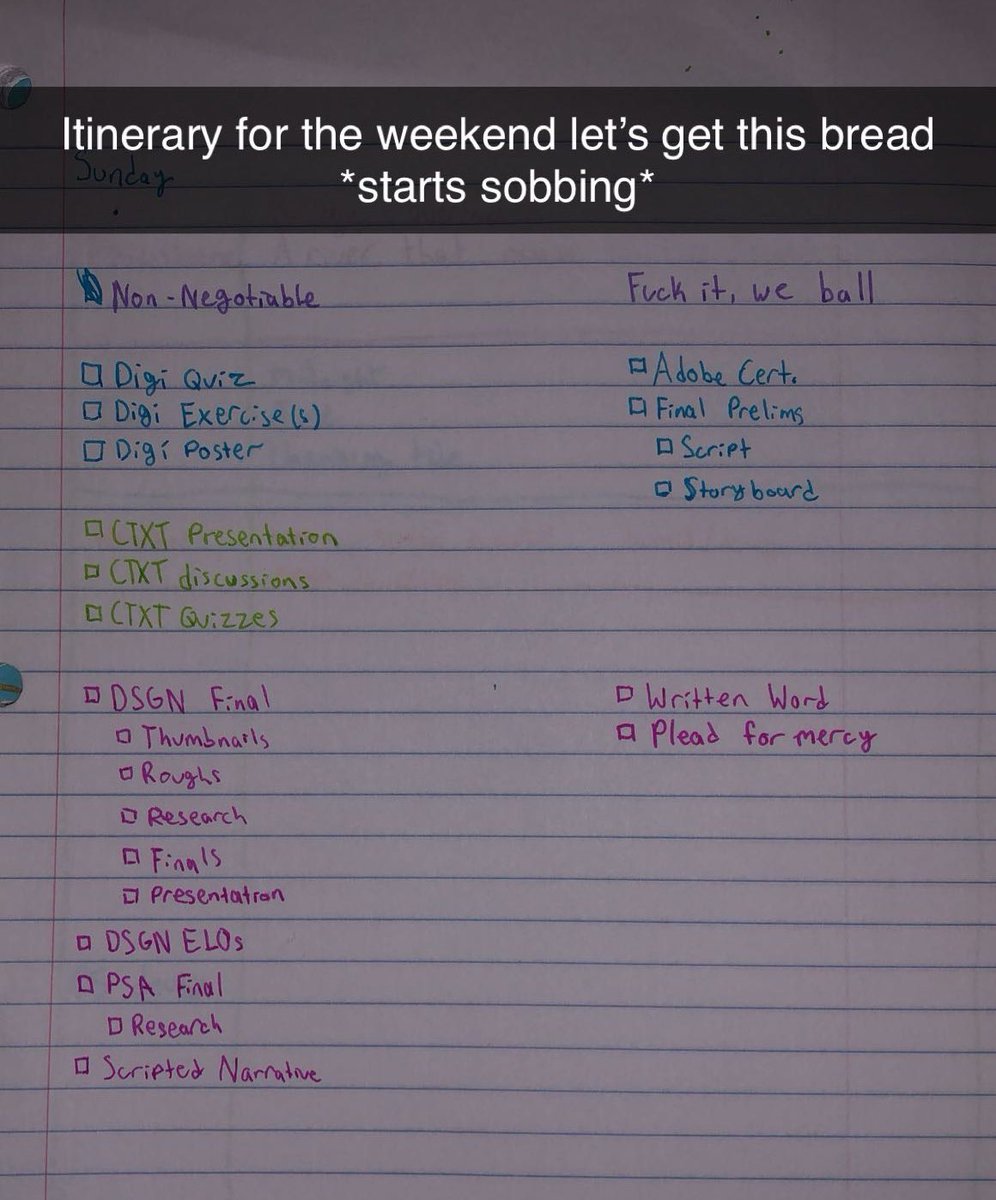 Itinerary for the weekend let's get this bread
*starts sobbing*
Sunday
Non-Negotiable
Digi Quiz
Digi Exercise(s)
Digi Poster
CTXT Presentation
CTXT discussions
CTXT Quizzes
DSGN Final
Thumbnails
Roughs
Research
Finals
Presentation
DSGN ELOs
PSA Final
Research
Scripted Narrative
Fuck it, we ball
Adobe Cert.
Final Prelims
Script
Storyboard
Written Word
Plead for mercy